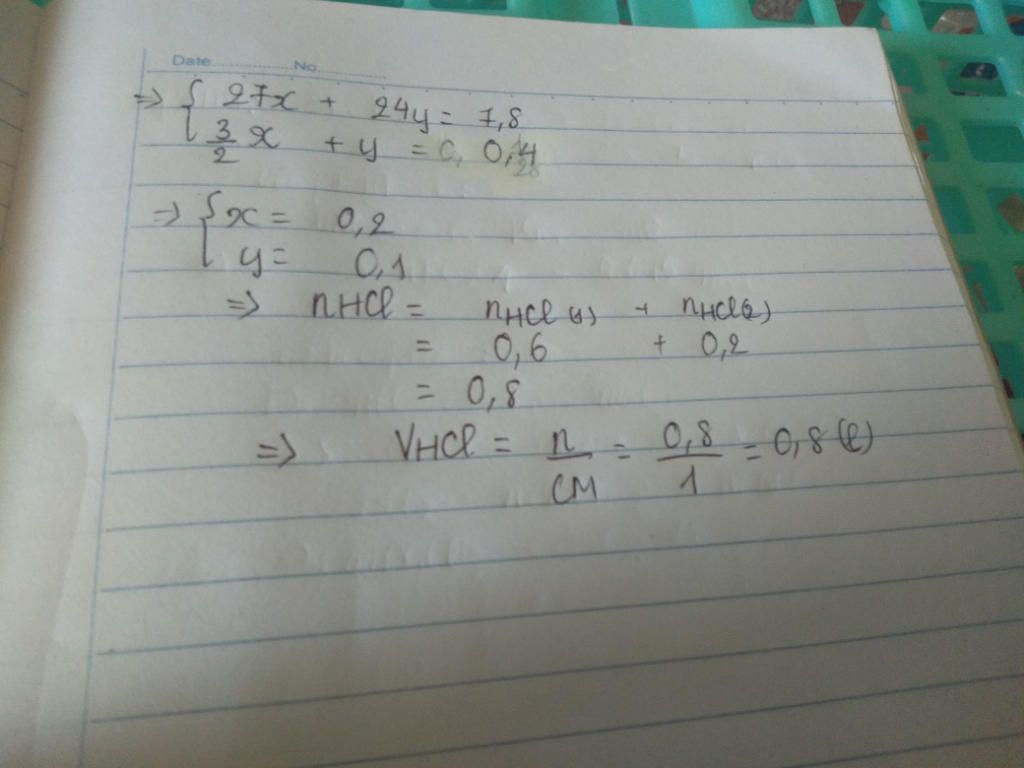 Date No
=> { 27x + 24y = 7,8
3/2 x + y = 0,4
=> { x = 0,2
y = 0,1
=> nHCl = nHCl (1) + nHCl(2)
= 0,6 + 0,2
= 0,8
=> VHCl = n/CM = 0,8/1 = 0,8 (l)